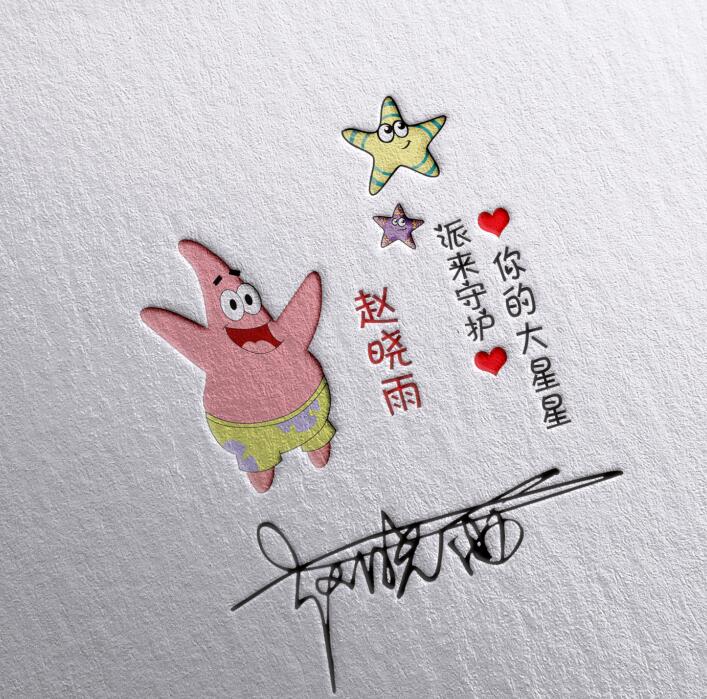 赵晓雨
派来守护
你的大星星